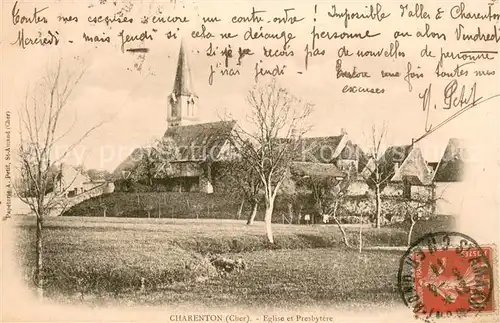 Toutes mes excuses et encore un contre-ordre ! Impossible d'aller à Charenton
Mercredi, mais jeudi si cela ne dérange personne ou alors Vendredi
Si je ne reçois pas de nouvelles de personne
j'irai jeudi. Encore une fois toutes mes
excuses
M Petit
Papeterie A. Petit, St-Amand (Cher)
CHARENTON (Cher). - Eglise et Presbytère